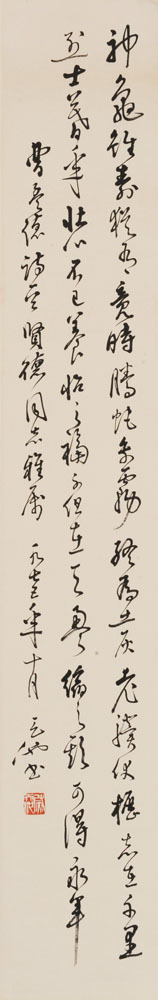 神龜雖壽猶有竟時騰蛇乘霧終為土灰老驥伏櫪志在千里
烈士暮年壯心不已養怡之福不但在天盈縮之期可得永年
曹孟德詩 賢德同志雅屬 一九七三年十月 書